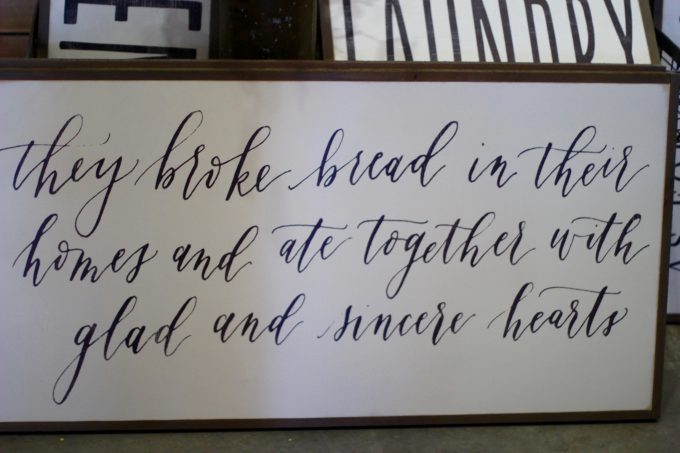 LAUNDRY
they broke bread in their
homes and ate together with
glad and sincere hearts